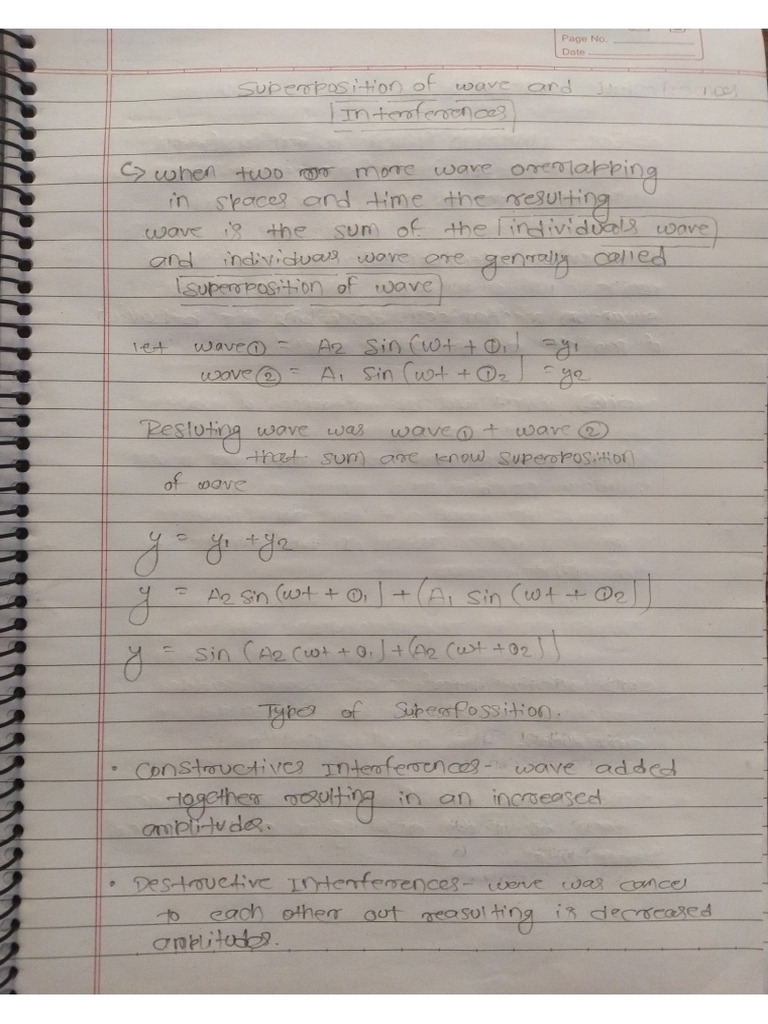 Page No.
Date
Superposition of wave and
Interferences
↪ when two or more wave overlapping
in spaces and time the resulting
wave is the sum of the individuals wave
and individuas wave are genrally called
superposition of wave
let wave① = A2 Sin(wt + Φ1) = y1
wave② = A1 Sin(wt + Φ2) = y2
Resluting wave was wave① + wave②
that sum are know superposition
of wave
y = y1 + y2
y = A2 Sin(wt + Φ1) + (A1 Sin(wt + Φ2))
y = Sin(A2(wt + Θ1) + (A2(wt + Θ2))
Types of Superpossition.
• Constructives Interferences - wave added
together resulting in an increased
amplitudes.
• Destructive Interferences - wave was cancel
to each other out reasulting is decreased
amplitudes.